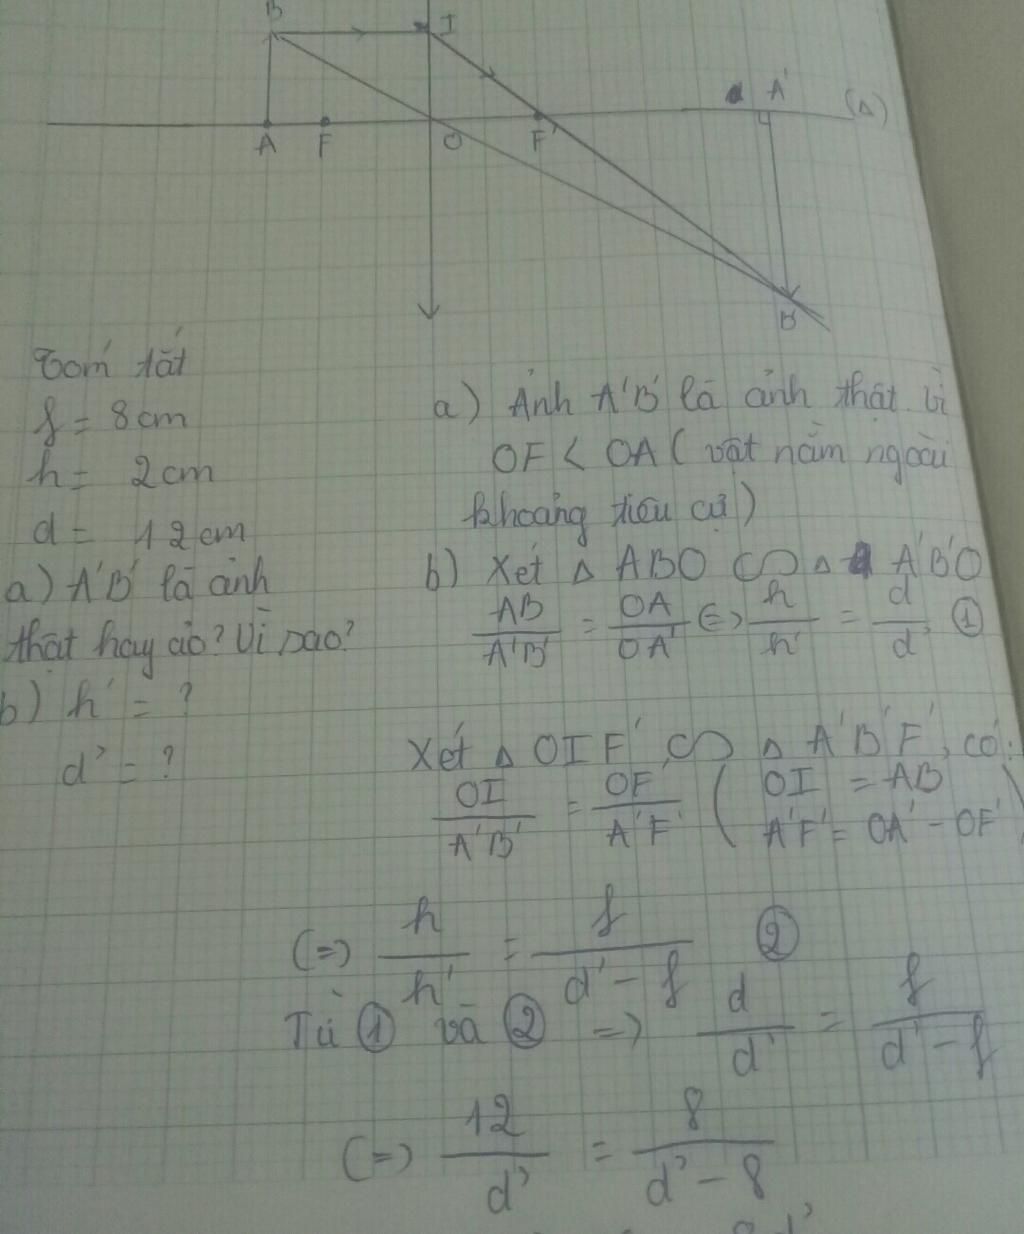 B I
A F O F' A' (Δ)
B'
Tóm tắt
f = 8cm
h = 2cm
d = 12cm
a) A'B' là ảnh
thật hay ảo? Vì sao?
b) h' = ?
d' = ?
a) Ảnh A'B' là ảnh thật vì
OF < OA ( vật nằm ngoài
khoảng tiêu cự )
b) Xét Δ ABO ∽ Δ A'B'O
AB/A'B' = OA/OA' <=> h/h' = d/d' ①
Xét Δ OIF' ∽ Δ A'B'F', có:
OI/A'B' = OF'/A'F' ( OI = AB
A'F' = OA' - OF' )
<=> h/h' = f/d' - f ②
Từ ① và ② => d/d' = f/d' - f
<=> 12/d' = 8/d' - 8